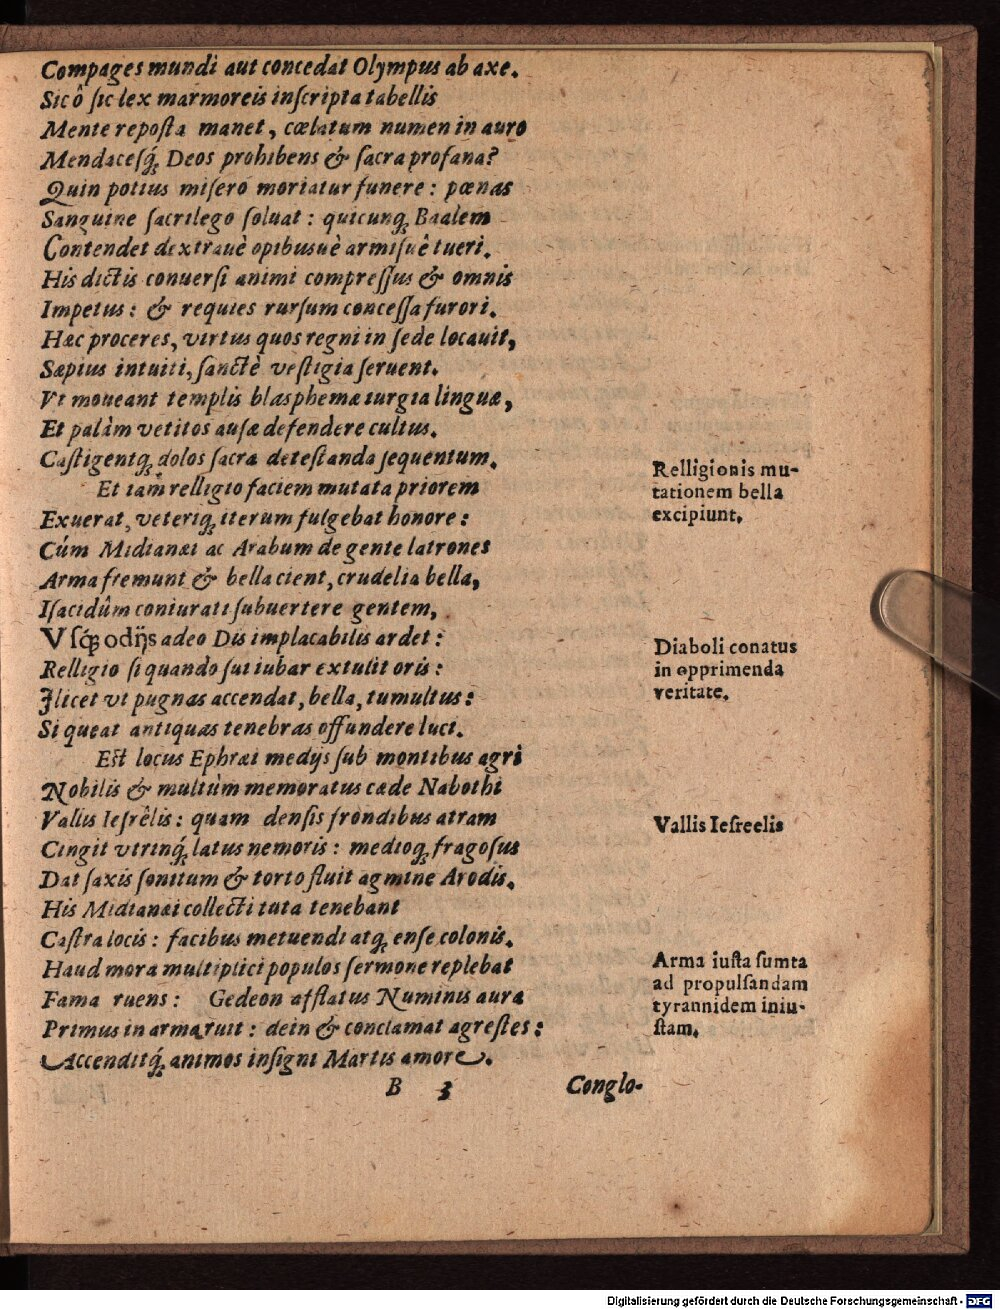 Compages mundi aut concedat Olympus ab axe.
Sic ô sic lex marmoreis inſcripta tabellis
Mente repoſta manet, cœlatum numen in auro
Mendaceſq́; Deos prohibens & ſacra profana?
Quin potius miſero moriatur funere: pœnas
Sanguine ſacrilego ſoluat: quicunq; Baalem
Contendet dextrauè opibusuè armiſuè tueri.
His dictis conuerſi animi compreſſus & omnis
Impetus: & requies rurſum conceſſa furori.
Hæc proceres, virtus quos regni in ſede locauit,
Sæpius intuiti, ſanctè veſtigia ſeruent.
Vt moueant templis blasphemæ iurgia linguæ,
Et palàm vetitos auſæ defendere cultus.
Caſtigentq; dolos ſacra deteſtanda ſequentum.
Et iam relligio faciem mutata priorem
Exuerat, veteriq; iterum fulgebat honore:
Cúm Midianæi ac Arabum de gente latrones
Arma fremunt & bella cient, crudelia bella,
Iſacidûm coniurati ſubuertere gentem,
Vſq́; odijs adeo Dis implacabilis ardet:
Relligio ſi quando ſui iubar extulit oris:
Ilicet vt pugnas accendat, bella, tumultus:
Si queat antiquas tenebras offundere luci.
Eſt locus Ephræi medijs ſub montibus agri
Nobilis & multùm memoratus cæde Nabothi
Vallis Ieſrêlis: quam denſis frondibus atram
Cingit vtrinq́; latus nemoris: medioq; fragoſus
Dat ſaxis ſonitum & torto fluit agmine Arodis.
His Midianæi collecti tuta tenebant
Caſtra locis: facibus metuendi atq; enſe colonis.
Haud mora multiplici populos ſermone replebat
Fama ruens: Gedeon afflatus Numinis aura
Primus in arma ruit: dein & conclamat agreſtes:
Accenditq́; animos inſigni Martis amore.
B 3 Conglo-
Relligionis mu-
tationem bella
excipiunt.
Diaboli conatus
in opprimenda
veritate.
Vallis Ieſreelis
Arma iuſta ſumta
ad propulſandam
tyrannidem iniu-
ſtam.
Digitalisierung gefördert durch die Deutsche Forschungsgemeinschaft - DFG